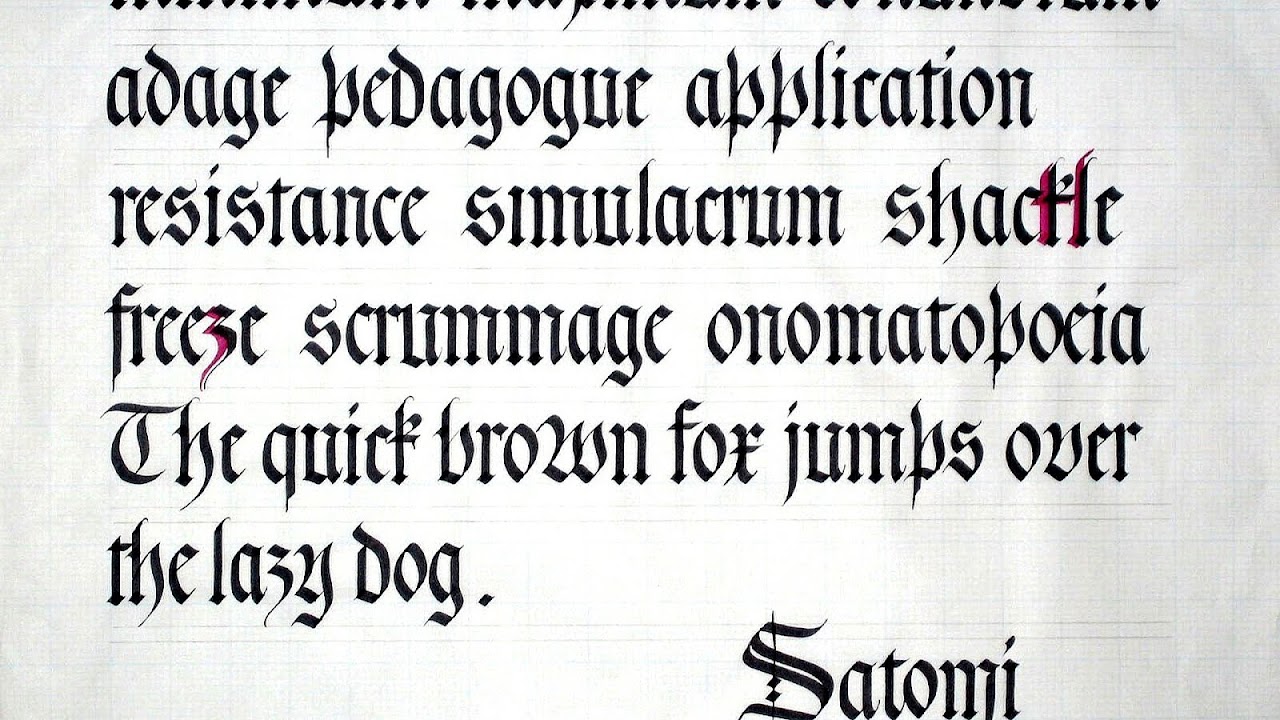 minimum maximum conundrum
adage pedagogue application
resistance simulacrum shackle
freeze scrummage onomatopoeia
The quick brown fox jumps over
the lazy dog.
Satomi